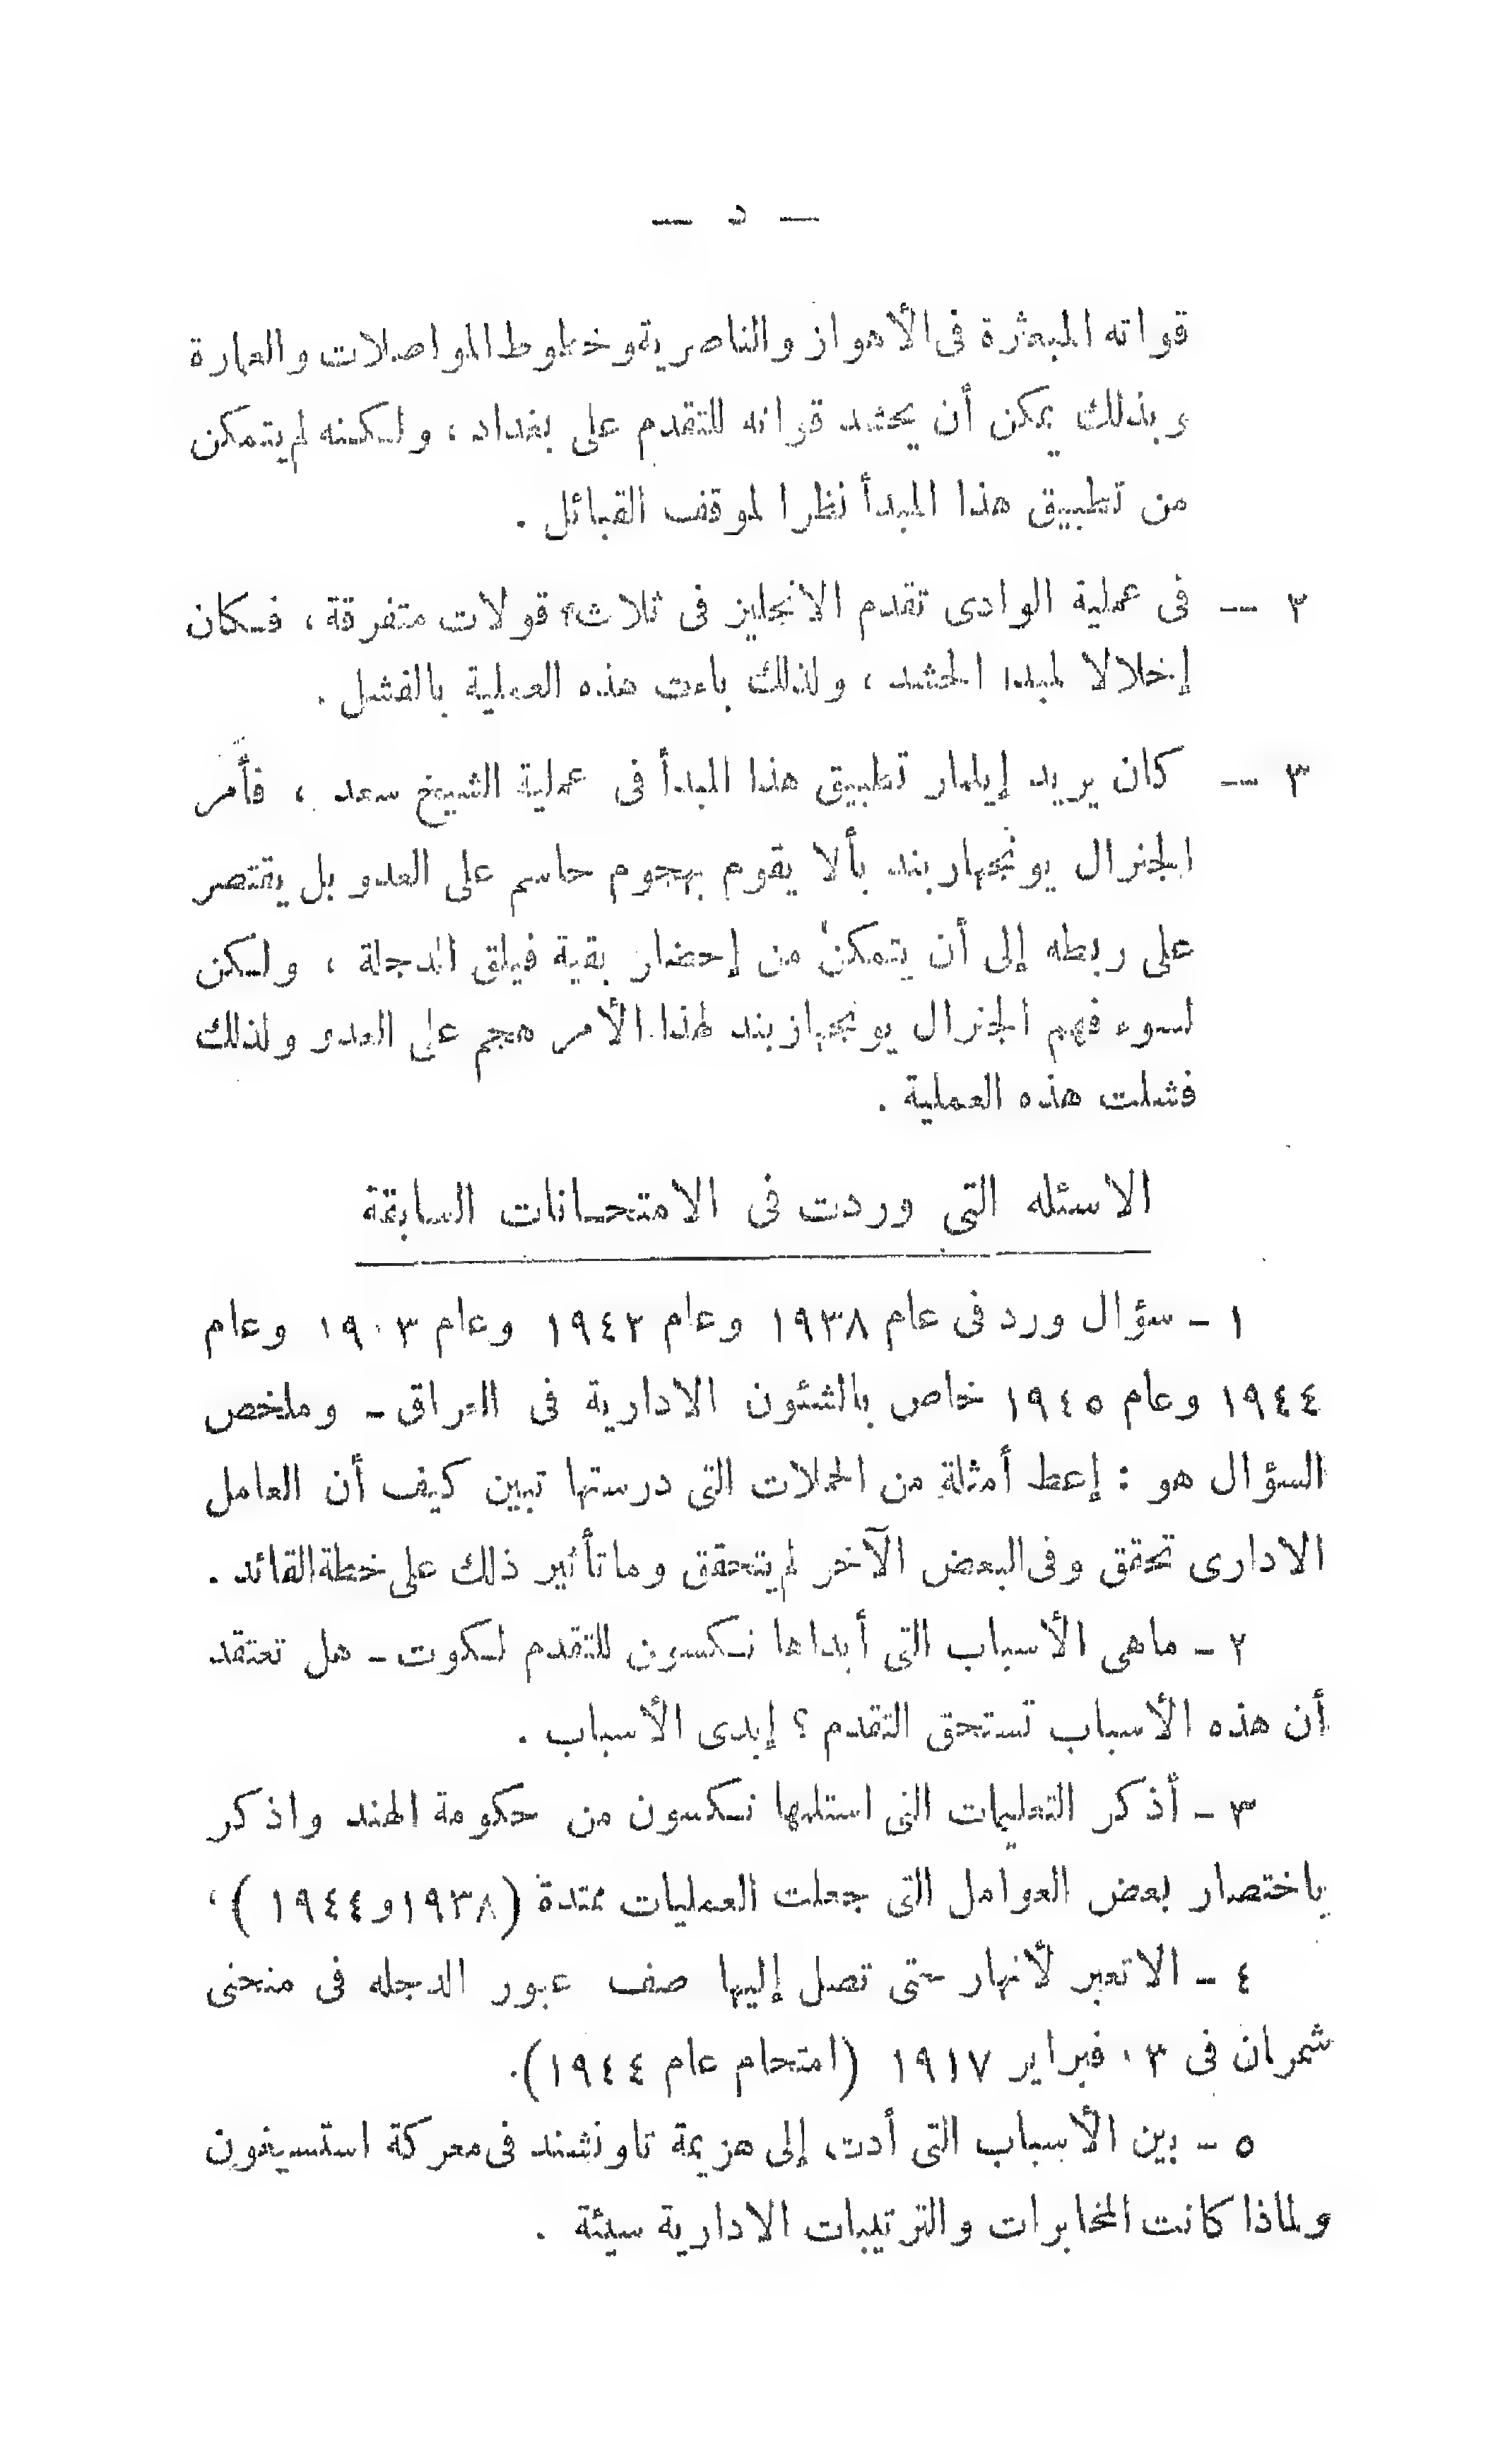 — د —
قواته المبعثرة فى الأهواز والناصرية وخطوط المواصلات والعمارة
وبذلك يمكن أن يحشد قواته للتقدم على بغداد ، ولكنه لم يتمكن
من تطبيق هذا المبدأ نظرا لموقف القبائل .
٢ — فى عملية الوادى تقدم الانجليز فى ثلاث قولات متفرقة ، فكان
إخلالا لمبدا الحشد ، ولذلك باءت هذه العملية بالفشل .
٣ — كان يريد إيلمار تطبيق هذا المبدأ فى عملية الشيخ سعد ، فأمر
الجنرال يونجهازبند بألا يقوم بهجوم حاسم على العدو بل يقتصر
على ربطه إلى أن يتمكن من إحضار بقية فيلق الدجلة ، ولكن
لسوء فهم الجنرال يونجهازبند لهذا الأمر هجم على العدو ولذلك
فشلت هذه العملية .
الاسئله التى وردت فى الامتحانات السابقة
١ - سؤال ورد فى عام ١٩٣٨ وعام ١٩٤٢ وعام ١٩٠٣ وعام
١٩٤٤ وعام ١٩٤٥ خاص بالشئون الادارية فى العراق - وملخص
السؤال هو : إعط أمثلة من الحملات التى درستها تبين كيف أن العامل
الادارى تحقق وفى البعض الآخر لم يتحقق وما تأثير ذلك على خطة القائد .
٢ - ماهى الأسباب التى أبداها نكسون للتقدم لكوت - هل تعتقد
أن هذه الأسباب تستحق التقدم ؟ إبدى الأسباب .
٣ - أذكر التعليمات التى استلمها نكسون من حكومة الهند واذكر
باختصار بعض العوامل التى جعلت العمليات ممتدة (١٩٣٨ و ١٩٤٤ ) ،
٤ - الاتعبر لأنهار حتى تصل إليها صف عبور الدجله فى منحنى
شمران فى ٠٣ فبراير ١٩١٧ (امتحام عام ١٩٤٤).
٥ - بين الأسباب التى أدت إلى هزيمة تاونشند فى معركة استسيفون
ولماذا كانت المخابرات والترتيبات الادارية سيئة .